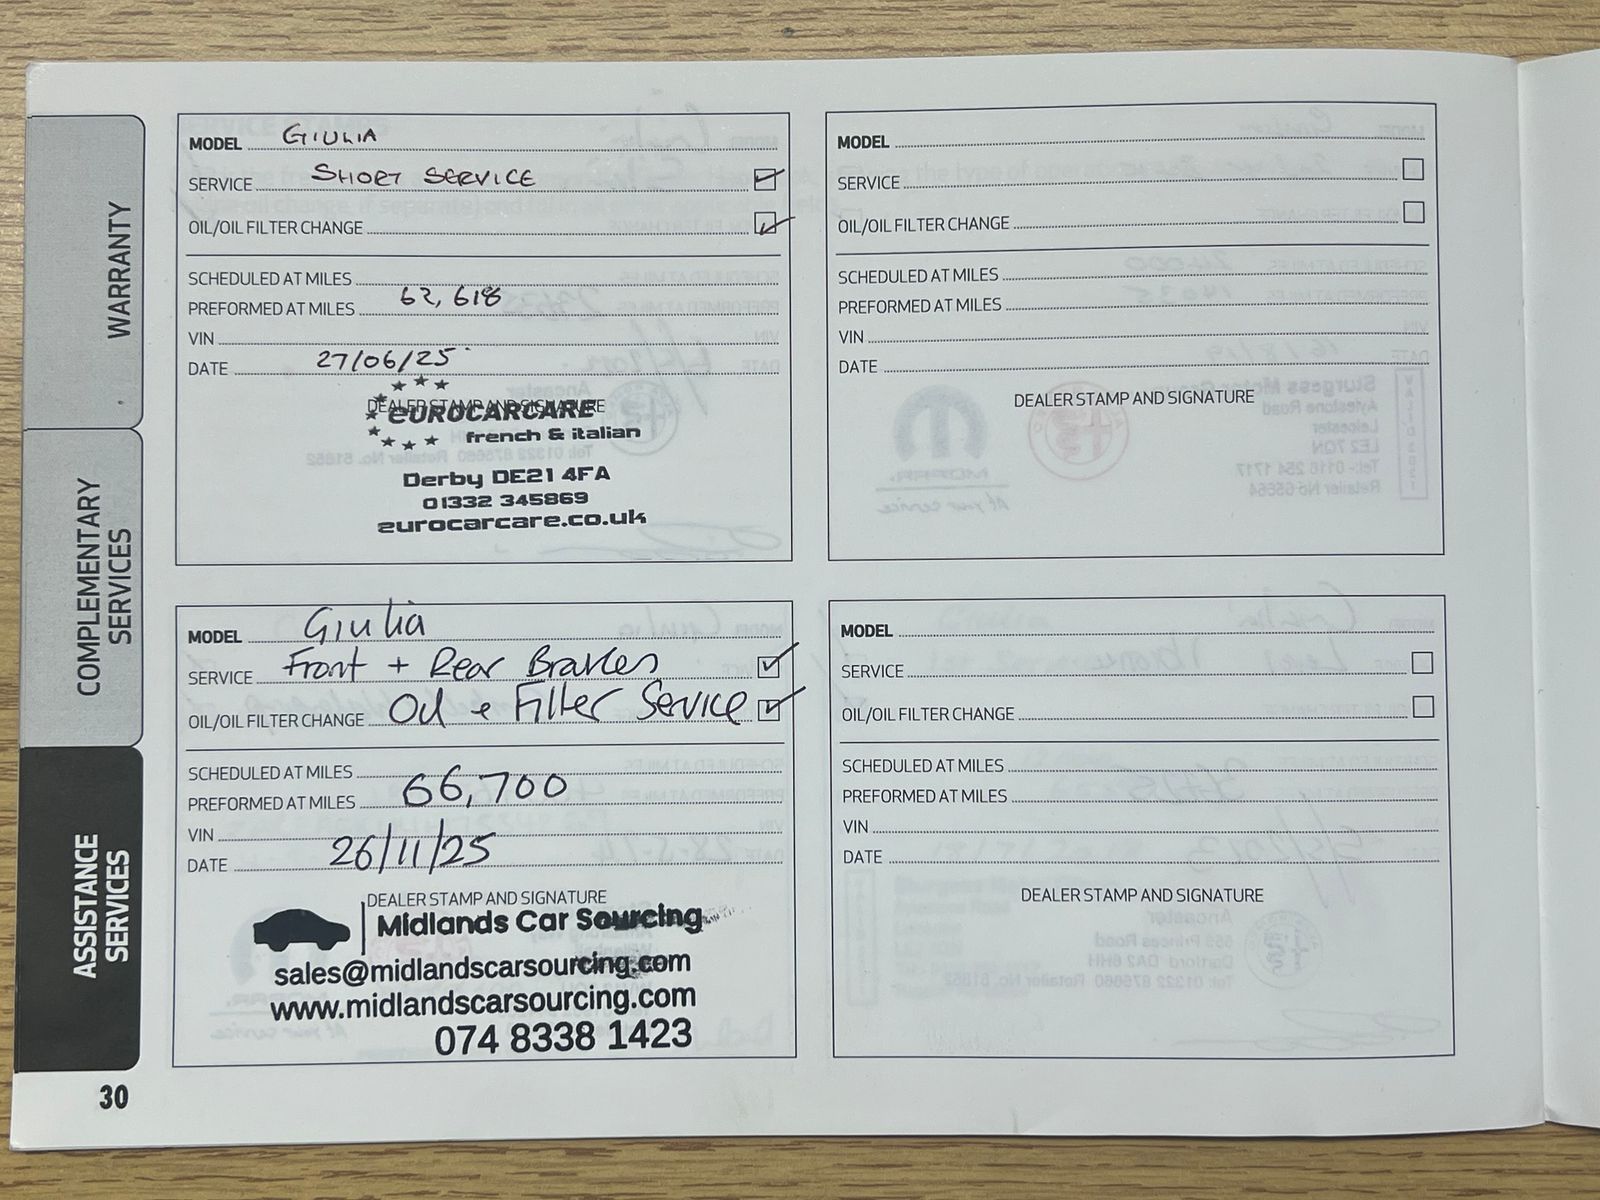 WARRANTY
COMPLEMENTARY
SERVICES
ASSISTANCE
SERVICES
30
MODEL GIULIA
SERVICE SHORT SERVICE
OIL/OIL FILTER CHANGE
SCHEDULED AT MILES
PREFORMED AT MILES 62,618
VIN
DATE 27/06/25
DEALER STAMP AND SIGNATURE
EUROCARCARE
french & italian
Derby DE21 4FA
01332 345869
eurocarcare.co.uk
MODEL
SERVICE
OIL/OIL FILTER CHANGE
SCHEDULED AT MILES
PREFORMED AT MILES
VIN
DATE
DEALER STAMP AND SIGNATURE
MODEL Giulia
SERVICE Front + Rear Brakes
OIL/OIL FILTER CHANGE Oil + Filter Service
SCHEDULED AT MILES
PREFORMED AT MILES 66,700
VIN
DATE 26/11/25
DEALER STAMP AND SIGNATURE
Midlands Car Sourcing
sales@midlandscarsourcing.com
www.midlandscarsourcing.com
074 8338 1423
MODEL
SERVICE
OIL/OIL FILTER CHANGE
SCHEDULED AT MILES
PREFORMED AT MILES
VIN
DATE
DEALER STAMP AND SIGNATURE